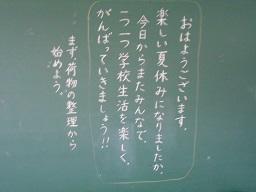 おはようございます。
楽しい夏休みになりましたか。
今日からまたみんなで、
一つ一つ学校生活を楽しく、
がんばっていきましょう!!
まず、荷物の整理から
始めよう。